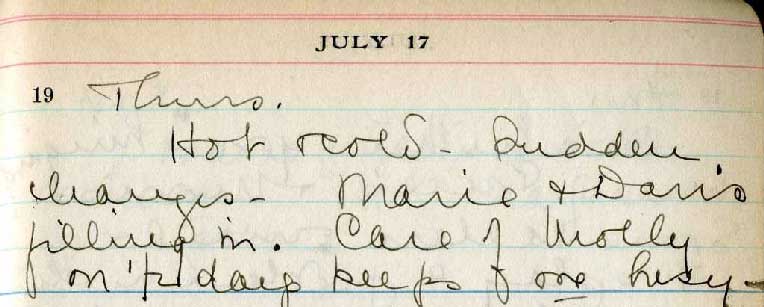 JULY 17
19 Thurs.
Hot & cold - Sudden
changes - Marie & Doris
filling in. Care of Molly
on days keeps one busy -